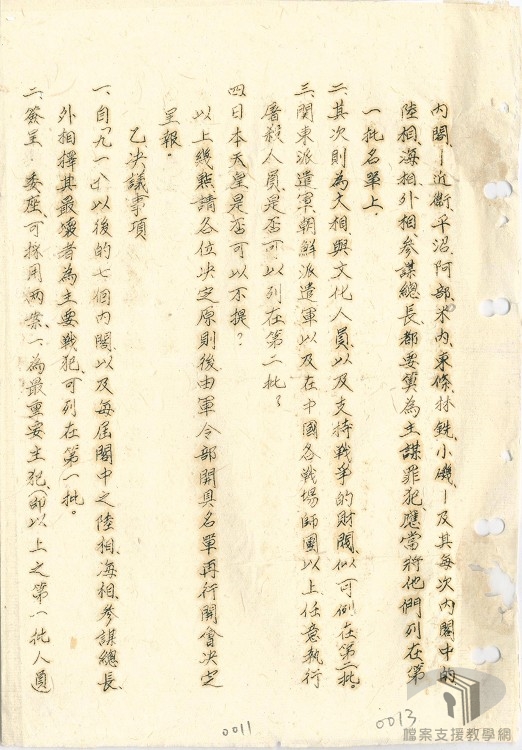 內閣—近衛、平沼、阿部、米內、東條、林銑、小磯—及其每次內閣中的
陸相、海相、外相、參謀總長、都要算為主謀罪犯、應當將他們列在第
一批名單上、
二、其次則為文相與文化人員以及支持戰爭的財閥、似可列在第二批。
三、関東派遣軍、朝鮮派遣軍以及在中國各戰場師團以上任意執行
屠殺人員、是否可以列在第二批？
四、日本天皇是否可以不提？
以上幾點請各位決定原則後由軍令部開具名單再行開會決定
呈報。
乙、決議事項
一、自「九一八」以後的七個內閣以及每屆閣中之陸相、海相、參謀總長、
外相擇其最壞者為主要戰犯、可列在第一批。
二、簽呈 委座、可採用兩案、一、為最重要主犯（即以上之第一批人員）
0011
0013
檔案支援教學網